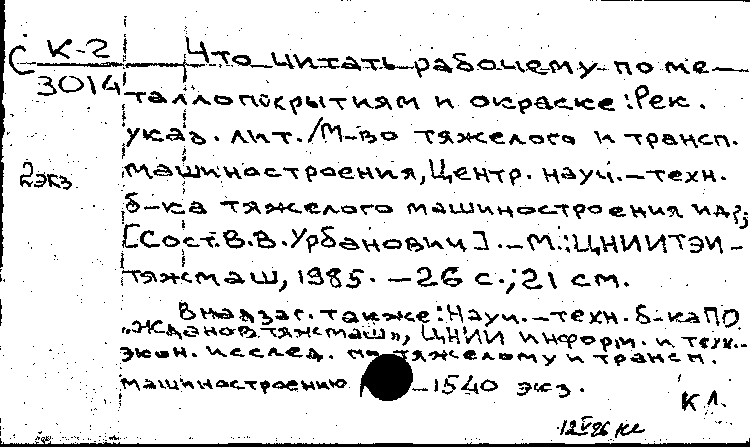 С К-2
3014
2 экз
Что читать рабочему по ме-
таллопокрытиям и окраске: Рек.
указ. лит./М-во тяжелого и трансп.
машиностроения, Центр. науч.-техн.
б-ка тяжелого машиностроения и др;
[Сост. В.В. Урбанович]. -М.: ЦНИИТЭИ-
тяжмаш, 1985. - 26 с.; 21 см.
В надзаг. также: Науч.-техн. б-ка ПО
„Ждановтяжмаш", ЦНИИ информ. и техн.-
экон. исслед. по тяжелому и трансп.
машиностроению - 1540 экз.
КЛ.